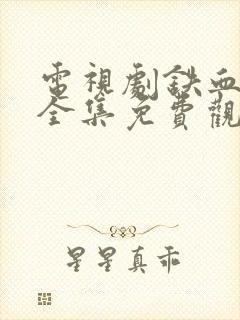 電視劇鉄血
全集免費觀
星星真乖